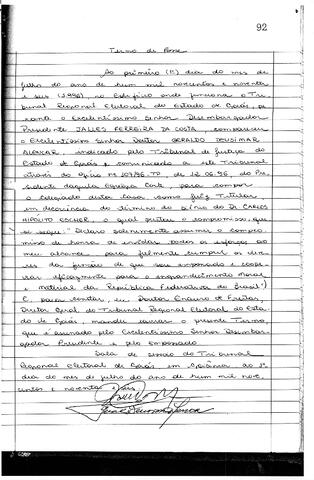 92
Termo de Posse
Ao primeiro (1º) dia do mês de
julho do ano de hum mil novecentos e noventa
e seis (1996) no Edifício onde funciona o Tri-
bunal Regional Eleitoral do Estado de Goiás, pe-
rante o Excelentíssimo Senhor Desembargador
Presidente JALLES FERREIRA DA COSTA, compareceu
o Excelentíssimo Senhor Doutor GERALDO DEUSIMAR
ALENCAR, indicado pelo Tribunal de Justiça do
Estado de Goiás e comunicado a este Tribunal
através do Ofício nº 109/96-TP, de 12.06.96, do Pre-
sidente daquela Egrégia Corte, para compor
o Colegiado desta Casa, como Juiz Titular
em decorrência do término do biênio do Dr. CARLOS
HIPÓLITO ESCHER, o qual prestou o compromisso, que
se segue: "Declaro solenemente assumir o compro-
misso de honra de envidar todos os esforços ao
meu alcance para fielmente cumprir os deve-
res da função de que sou empossado e coope-
rar eficazmente para o engrandecimento moral
e material da República Federativa do Brasil".
E, para constar, eu Doutor de Freitas,
Diretor Geral do Tribunal Regional Eleitoral do Esta-
do de Goiás, mandei lavrar o presente Termo,
que é assinado pelo Excelentíssimo Senhor Desembar-
gador Presidente e pelo empossado.
Sala de sessão do Tribunal
Regional Eleitoral de Goiás, em Goiânia ao 1º
dia do mês de julho do ano de hum mil nove-
centos e noventa e seis.